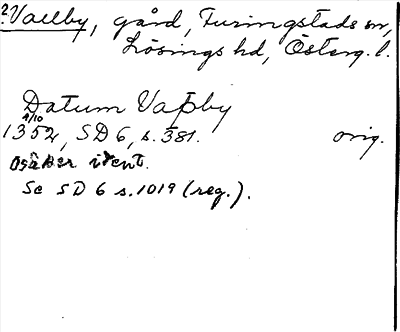 ?Vallby, gård, Furingstads sn,
Lösings hd, Österg. l.
Datum Vapby
4/10
1352, SD 6, s. 381. orig.
Osäker ident.
Se SD 6 s. 1019 (reg.).